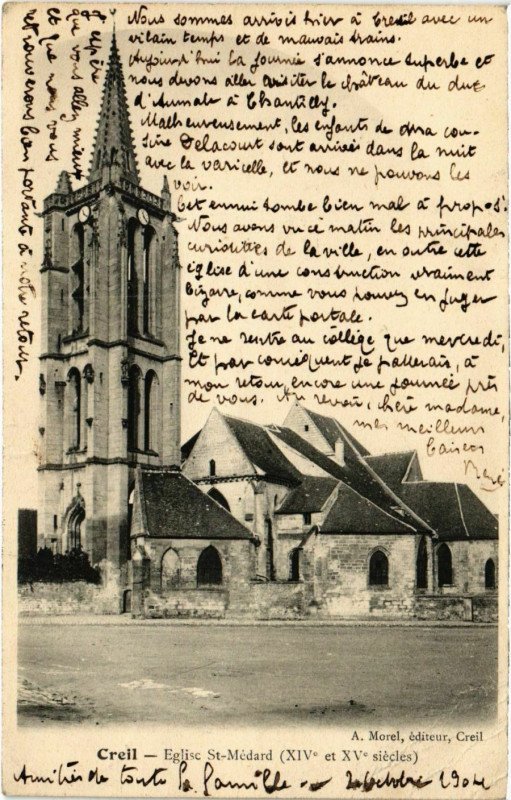 Nous sommes arrivés hier à Creil avec un
vilain temps et de mauvais trains.
Aujourd'hui la journée s'annonce superbe et
nous devons aller visiter le château du duc
d'Aumale à Chantilly.
Malheureusement, les enfants de ma cou-
sine Delacourt sont arrivés dans la nuit
avec la varicelle, et nous ne pouvons les
voir.
Cet ennui tombe bien mal à propos.
Nous avons vu ce matin les principales
curiosités de la ville, en outre cette
église d'une construction vraiment
bizarre, comme vous pouvez en juger
par la carte postale.
Je ne rentre au collège que mercredi,
Et par conséquent je passerais, à
mon retour, encore une journée près
de vous. Au revoir, chère madame,
mes meilleurs
baisers
René
J'espère
que vous allez mieux
et que nous vous
retrouverons bien portante à notre retour.
A. Morel, éditeur, Creil
Creil — Eglise St-Médard (XIVe et XVe siècles)
Amitiés de toute la famille — 2 octobre 1904